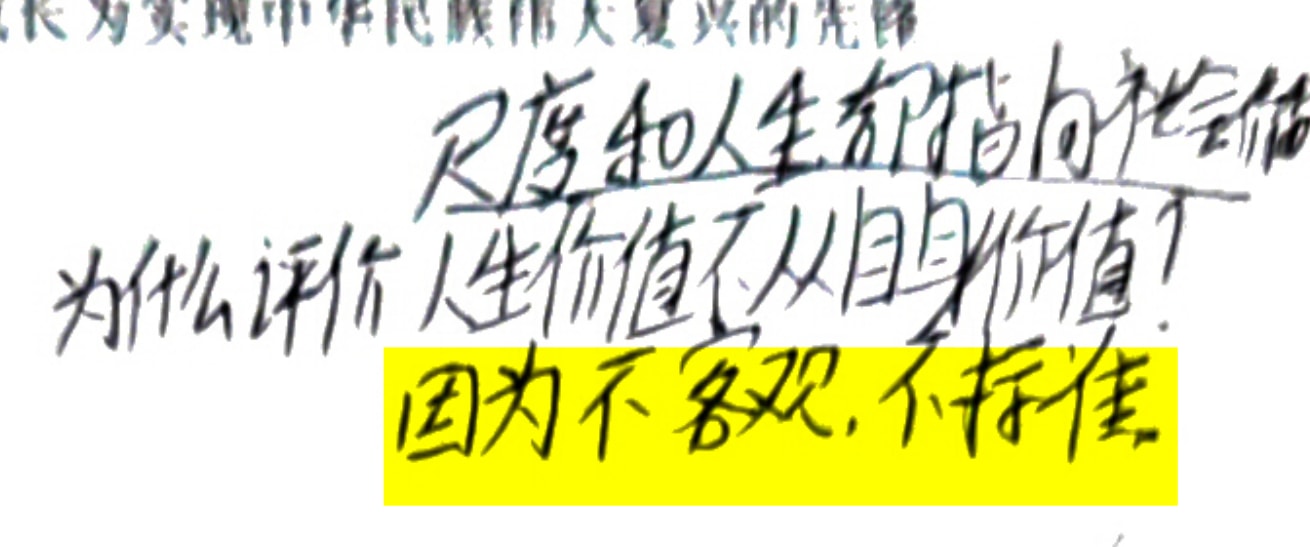 长为实现中华民族伟大复兴的先锋
尺度和人生都指向社会价
为什么评价人生价值不从自身价值?
因为不客观,不标准。